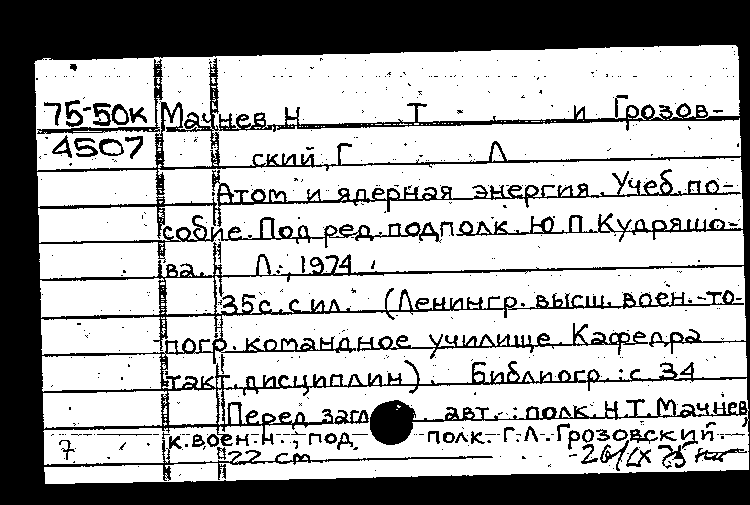 75-50к Мачнев, Н Т и Грозов-
4507 ский, Г Л
Атом и ядерная энергия. Учеб. по-
собие. Под ред. подполк. Ю. П. Кудряшо-
ва. Л., 1974.
35с. с ил. (Ленингр. высш. воен.-то-
погр. командное училище. Кафедра
такт. дисциплин). Библиогр.: с 34
Перед загл. авт.: полк. Н.Т. Мачнев,
к. воен. н., под полк. Г.Л. Грозовский.
7 22 cm